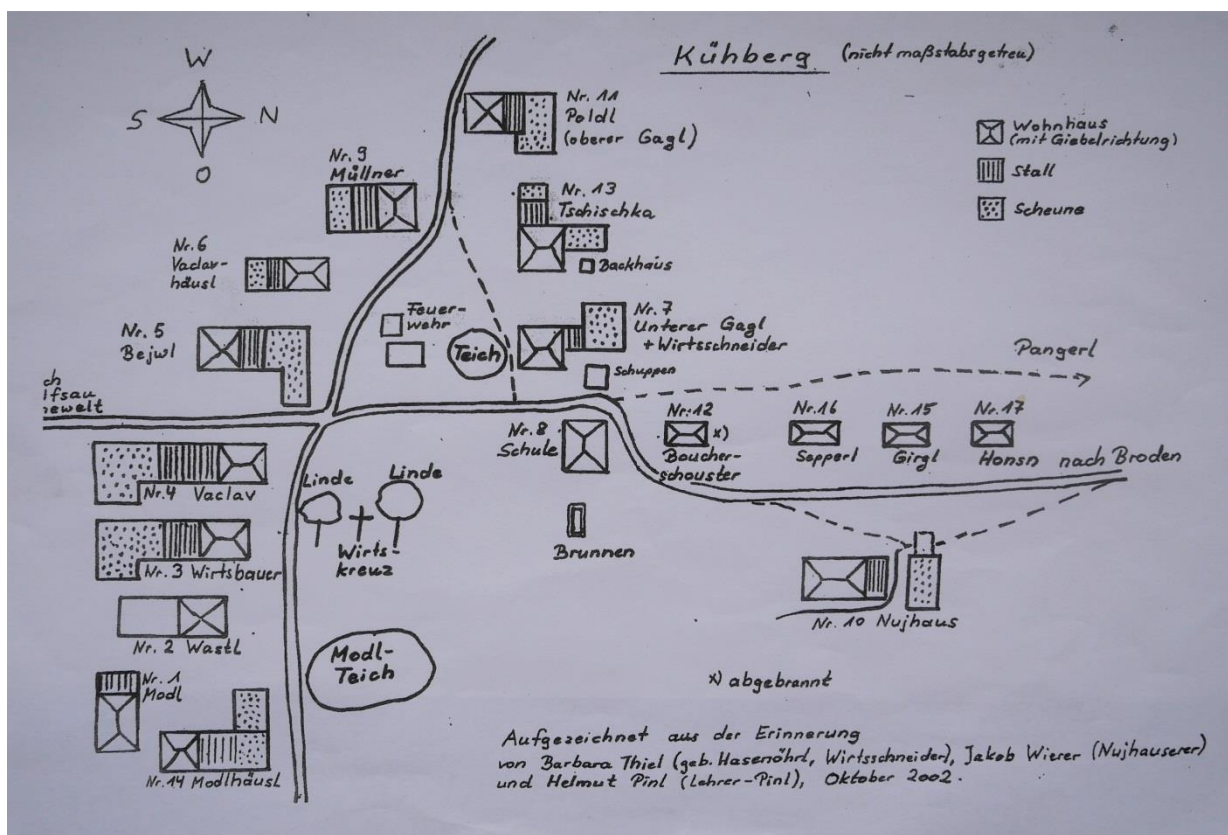 Kühberg (nicht maßstabsgetreu)
W
S N
O
Wohnhaus
(mit Giebelrichtung)
Stall
Scheune
Nr. 11
Poldl
(oberer Gagl)
Nr. 9
Müllner
Nr. 13
Tschischka
Backhaus
Nr. 6
Vaclav-
häusl
Nr. 5
Bejwl
Feuer-
wehr
Teich
Nr. 7
Unterer Gagl
+ Wirtsschneider
Schuppen
Pangerl
ch
lfsau
newelt
Nr. 8
Schule
Nr. 12
x)
Boucher-
schouster
Nr. 16
Sepperl
Nr. 15
Girgl
Nr. 17
Honsn
nach Broden
Nr. 4 Vaclav
Linde
Linde
Wirts-
kreuz
Brunnen
Nr. 3 Wirtsbauer
Nr. 10 Nujhaus
Nr. 2 Wastl
Modl-
Teich
Nr. 1
Modl
Nr. 14 Modlhäusl
x) abgebrannt
Aufgezeichnet aus der Erinnerung
von Barbara Thiel (geb. Hasenöhrl, Wirtsschneider), Jakob Wierer (Nujhauserer)
und Helmut Pinl (Lehrer-Pinl), Oktober 2002.